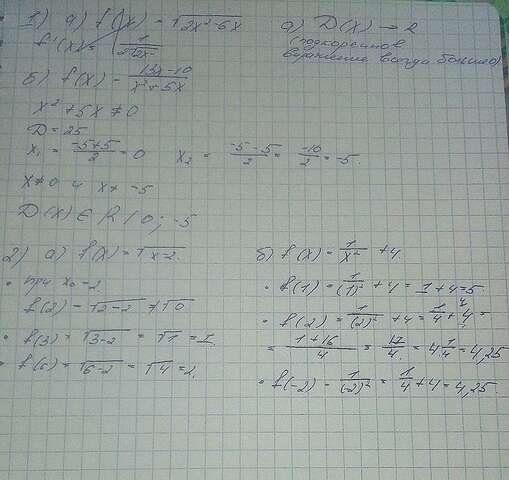 1) а) f(x) = √2x² - 6x
f'(x) = 1
а) D(x) → 2
(подкоренное
выражение всегда больше)
б) f(x) = 13x-10 / x²+5x
x² + 5x ≠ 0
D = 25
x₁ = -5+5 / 2 = 0 x₂ = -5-5 / 2 = -10 / 2 = -5.
x ≠ 0 и x ≠ -5
D(x) ∈ R / 0; -5
2) а) f(x) = √x-2.
• при x₀ = 2
f(2) = √2-2 = √0
• f(3) = √3-2 = √1 = 1.
• f(6) = √6-2 = √4 = 2.
б) f(x) = 1/x² + 4
• f(1) = 1/(1)² + 4 = 1 + 4 = 5
• f(2) = 1/(2)² + 4 = 1/4 + 4 =
= 1+16 / 4 = 17/4 = 4 1/4 = 4,25
• f(-2) - 1/(-2)² = 1/4 + 4 = 4,25.